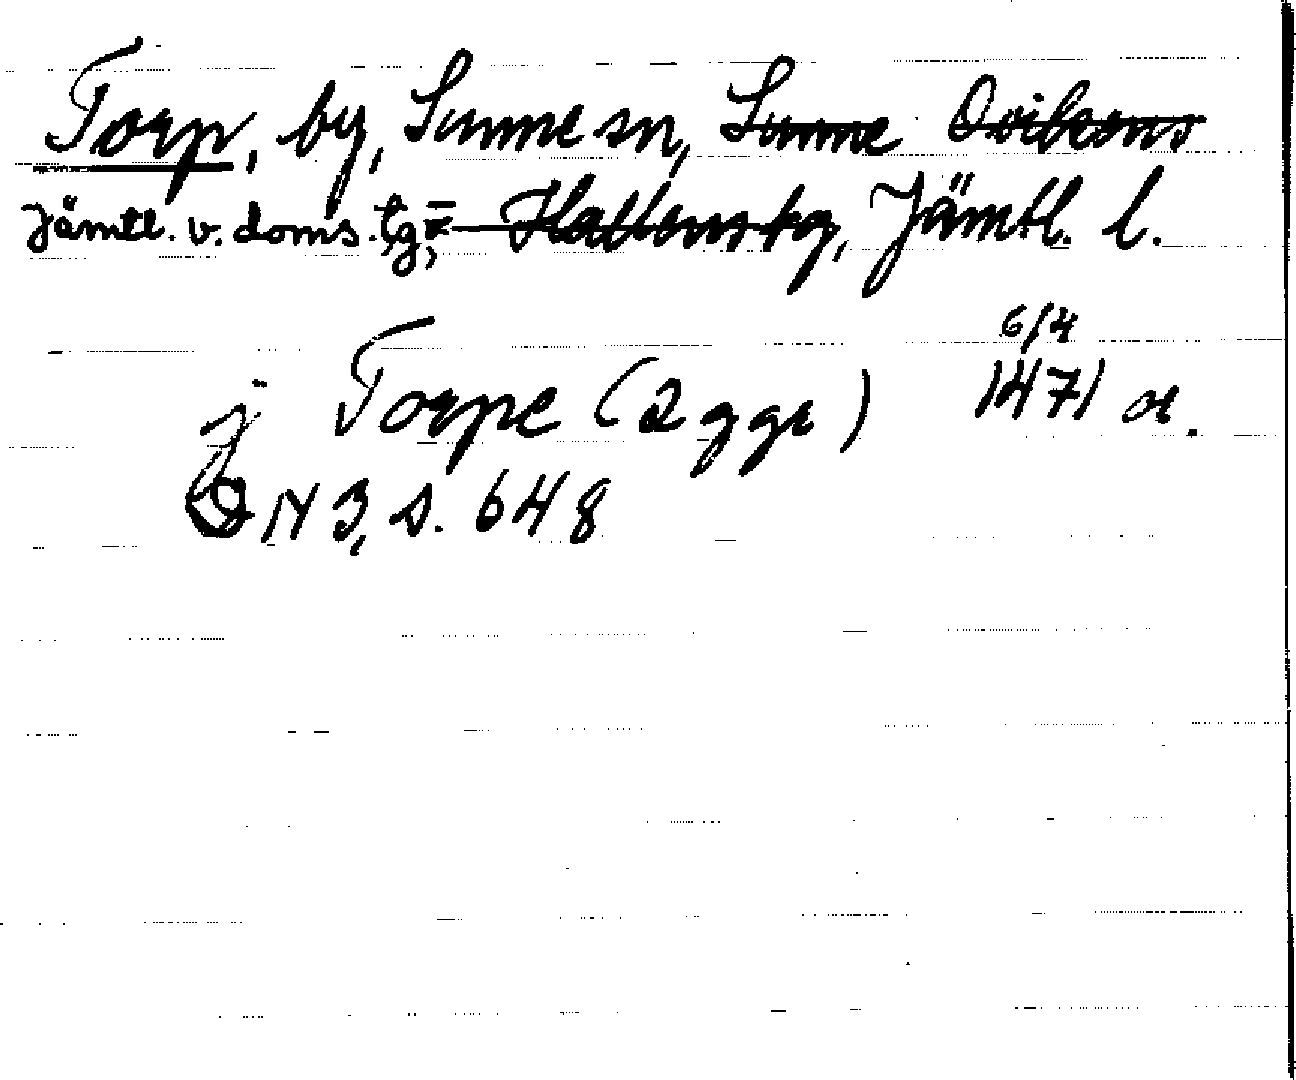 Torp, by, Sunne sn, Sunne Ovikens
Jämtl. v. doms. tg, Hallens tg, Jämtl. l.
6/4
j Torpe (2 ggr) 1471 or.
DN 3, s. 648